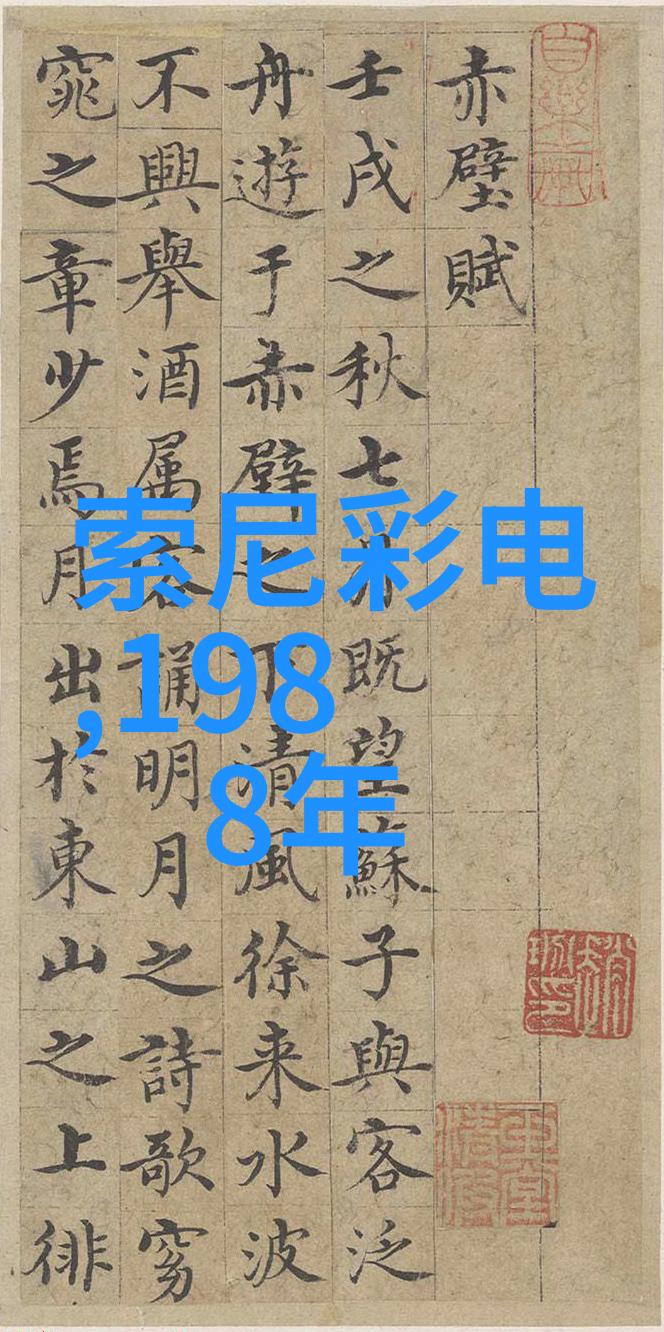 赤壁賦
壬戌之秋七月既望蘇子與客泛
舟遊于赤壁之下清風徐来水波
不興舉酒属客誦明月之詩歌窈
窕之章少焉月出於東山之上徘
索尼彩电
,198
8年